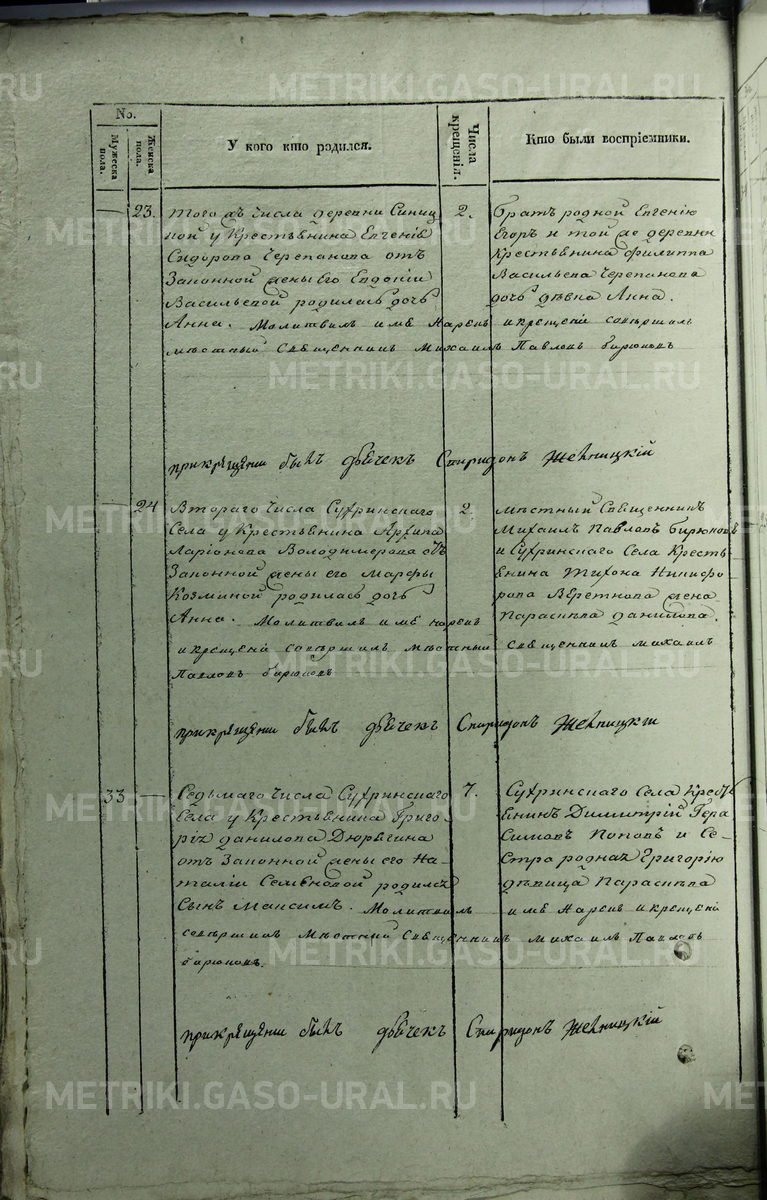 METRIKI.GASO-URAL.RU
No.
Мужеска пола.
Женска пола.
У кого кто родился.
Числа крещенія.
Кто были воспріемники.
23.
Того жъ Числа деревни Синиц
ной у Крестьянина Евгенія
Сидорова Черепанова отъ
Законной жены Его Евдокіи
Васильевой родилась дочь
Анна. Молитвилъ имя Нарекъ и крещеніе совершилъ
мѣстный Священникъ Михаилъ Павловъ Бирюковъ
2.
братъ родной Евгенію
Егоръ и той же деревни
Крестьянина Филиппа
Васильева Черепанова
дочь дѣвка Анна.
прикрещении былъ дьячекъ Спиридонъ
24
Втораго Числа Сухринскаго
Села у Крестьянина Архипа
Ларіонова Володимерова отъ
Законной жены его Марѳы
Козминой родилась дочь
Анна. Молитвилъ имя нарекъ
и крещеніе совершилъ мѣстный Священникъ Михаилъ
Павловъ Бирюковъ
2
мѣстный Священникъ
Михаилъ Павловъ Бирюковъ
и Сухринскаго Села Кресть
янина Тихона Никифо
рова жена
Параскѣва Данилова.
прикрещении былъ дьячекъ Спиридонъ
33
Седьмаго Числа Сухринскаго
Села у Крестьянина Григо
рія Данилова Дюрягина
отъ Законной жены его На
таліи Семеновой родился
Сынъ Максимъ. Молитвилъ имя Нарекъ и крещеніе
совершилъ Мѣстный Священникъ Михаилъ Павловъ
Бирюковъ.
7.
Сухринскаго Села Кресть
янинъ Димитрій Гера
симовъ Поповъ и Се
стра родная Григорію
дѣвица Параскѣва
прикрещении былъ дьячекъ Спиридонъ